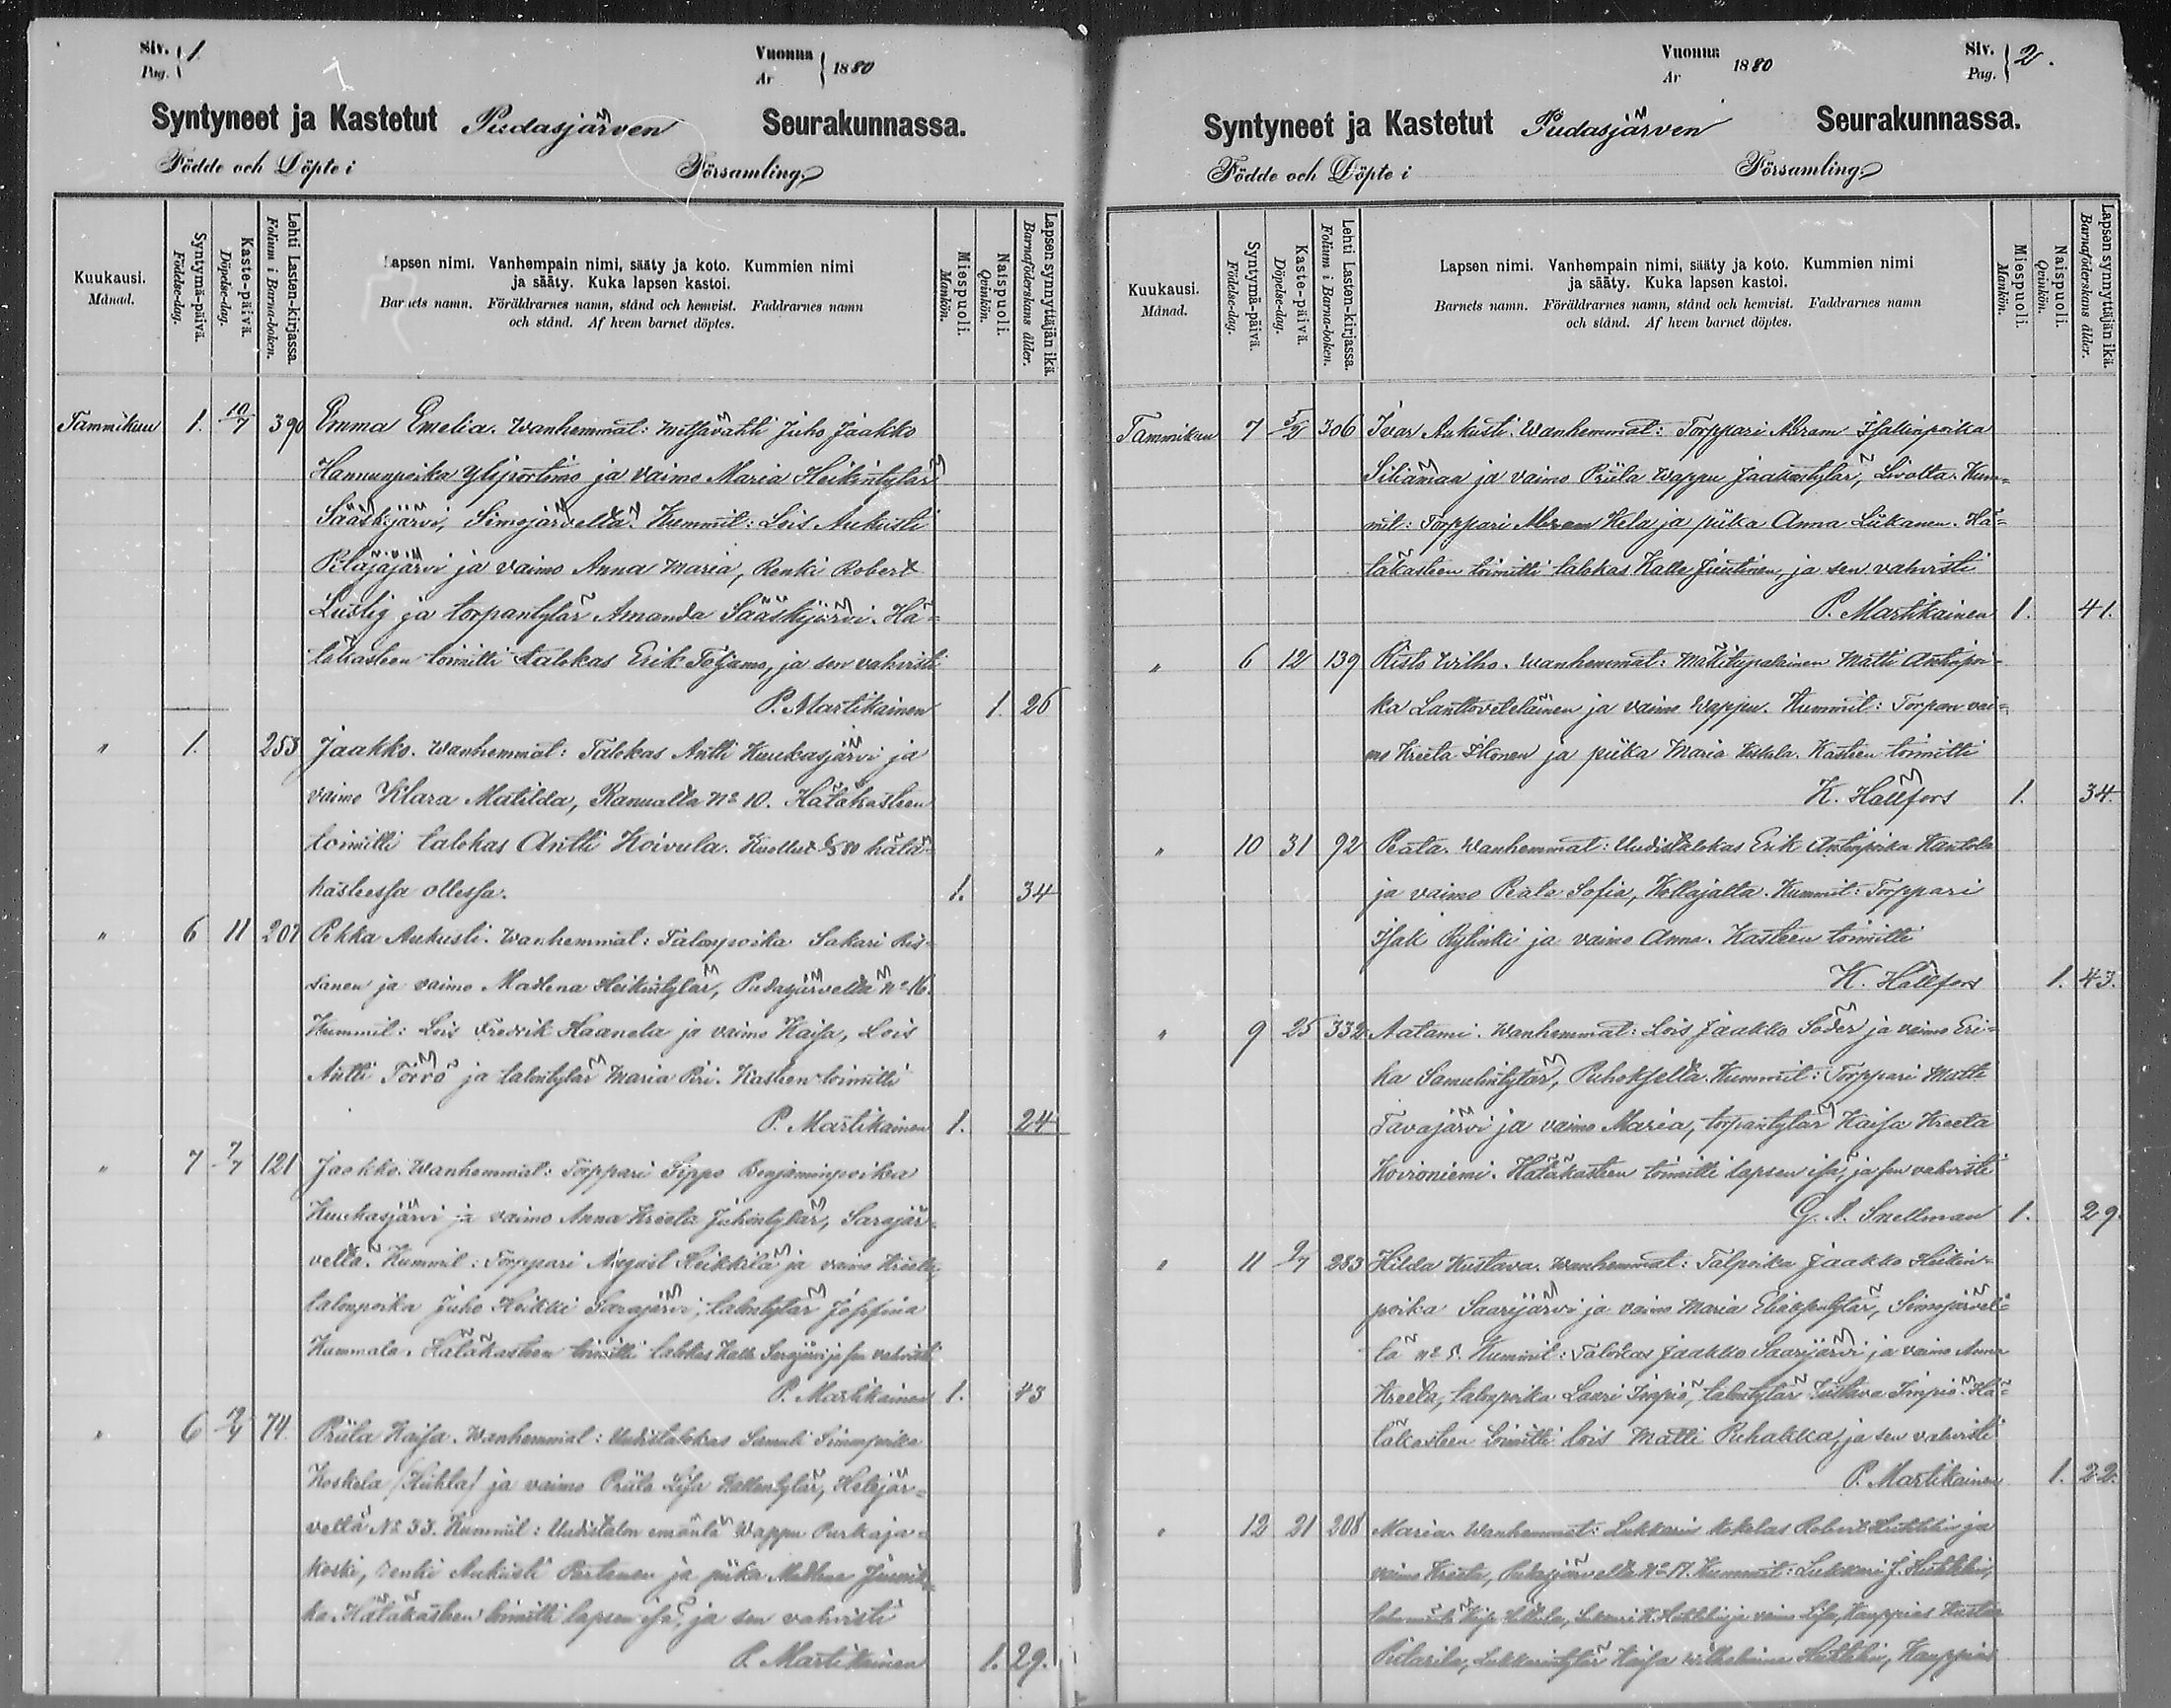 Siv. 1.
Pag.
1
Vuonna
År 1880
Syntyneet ja Kastetut Pudasjärven Seurakunnassa.
Födde och Döpte i Församling.
Kuukausi. Månad.
Syntymä-päivä. Födelse-dag.
Kaste-päivä. Döpelse-dag.
Lehti Lasten-kirjassa. Folium i Barna-boken.
Lapsen nimi. Vanhempain nimi, sääty ja koto. Kummien nimi
ja sääty. Kuka lapsen kastoi.
Barnets namn. Föräldrarnes namn, stånd och hemvist. Faddrarnes namn
och stånd. Af hvem barnet döptes.
Miespuoli. Mankön.
Naispuoli. Qvinkön.
Lapsen synnyttäjän ikä. Barnaföderskans ålder.
Tammikuu 1. 10/7 390 Emma Emelia. Wanhemmat: metsävahti Juho Jaakko
Hannunpoika Yliportimo ja vaimo Maria Heikintytär
Sääskijärvi, Simojärveltä. Kummit: Lois Aukusti
Pilajajärvi ja vaimo Anna Maria, Renki Robert
Lustig ja torpantytär Amanda Sääskijärvi. Hä-
täkasteen toimitti talokas Erik Töljamo, ja sen vahvisti
P. Martikainen 1. 26
" 1. 253 Jaakko. Wanhemmat: Talokas Antti Kuukasjärvi ja
vaimo Klara Matilda, Ranualta No 10. Hätäkasteen
toimitti talokas Antti Hoivula. Kuollut 80 hätä-
kasteessa ollessa. 1. 34
" 6 11 207 Pekka Aukusti. Wanhemmat: Talonpoika Sakari Ris-
sanen ja vaimo Madlena Heikintytär, Pudasjärveltä No 16.
Kummit: Lois Fredrik Haanela ja vaimo Kaisa, Lois
Antti Törrö ja talontytär Maria Piri. Kasteen toimitti
P. Martikainen 1. 24
" 7 7/7 121 Jaakko. Wanhemmat: Torppari Sippo Benjaminpoika
Kuukasjärvi ja vaimo Anna Kreeta Juhontytär, Sarajär-
veltä. Kummit: Torppari August Heikkilä ja vaimo Kreeta,
talonpoika Juho Heikki Sarajärvi, talontytär Josefina
Kummala. Hätäkasteen toimitti talokas Kalle Sarajärvi ja sen vahvisti
P. Martikainen 1. 43
" 6 74 Priita Kaisa. Wanhemmat: Uudistalokas Samuli Simonpoika
Koskela (Kuhla) ja vaimo Priita Liisa Kallentytär, Hetejär-
veltä No 33. Kummit: Uudistalon emäntä Wappu Purkaja-
koski, renki Aukusti Partanen ja piika Madlena
ka. Hätäkasteen toimitti lapsen isä, ja sen vahvisti
P. Martikainen 1. 29.
Vuonna
År 1880
Siv. 2.
Pag.
Syntyneet ja Kastetut Pudasjärven Seurakunnassa.
Födde och Döpte i Församling.
Kuukausi. Månad.
Syntymä-päivä. Födelse-dag.
Kaste-päivä. Döpelse-dag.
Lehti Lasten-kirjassa. Folium i Barna-boken.
Lapsen nimi. Vanhempain nimi, sääty ja koto. Kummien nimi
ja sääty. Kuka lapsen kastoi.
Barnets namn. Föräldrarnes namn, stånd och hemvist. Faddrarnes namn
och stånd. Af hvem barnet döptes.
Miespuoli. Mankön.
Naispuoli. Qvinkön.
Lapsen synnyttäjän ikä. Barnaföderskans ålder.
Tammikuu 7 5/2 306 Ivar Aukusti. Wanhemmat: Torppari Abram Isakinpoika
Siliämaa ja vaimo Priita Wappu Jaakontytär, Livolta. Kum-
mit: Torppari Abram Kela ja piika Anna Liikanen. Hä-
täkasteen toimitti talokas Kalle Juutinen, ja sen vahvisti
P. Martikainen 1. 41.
" 6 12 139 Risto Wilho. Wanhemmat: Mäkitupalainen Matti Antinpoi-
ka Lanttoveteläinen ja vaimo Wappu. Kummit: Torpan vai-
mo Kreeta Ilkonen ja piika Maria Koskela. Kasteen toimitti
K. Hällfors 1. 34.
" 10 31 92 Beata. Wanhemmat: Uudistalokas Erik Antinpoika Kantola
ja vaimo Beata Sofia, Kollajalta. Kummit: Torppari
Isak Rylinki ja vaimo Anna. Kasteen toimitti
K. Hällfors 1. 43.
" 9 25 332 Aatami. Wanhemmat: Lois Jaakko Söder ja vaimo Eri-
ka Samulintytär, Puhokselta. Kummit: Torppari Matti
Tavajärvi ja vaimo Maria, torpantytär Kaisa Kreeta
Koivoniemi. Hätäkasteen toimitti lapsen isä, ja sen vahvisti
G. A. Snellman 1. 29.
" 11 283 Hilda Kustava. Wanhemmat: Talpoika Jaakko Heikin-
poika Saarijärvi ja vaimo Maria Eliaksentytär, Simojärvel-
tä No 5. Kummit: Talokas Jaakko Saarijärvi ja vaimo Anna
Kreeta, talonpoika Lauri Impiö, talontytär Kustava Impiö. Hä-
täkasteen toimitti lois Matti Puhakka, ja sen vahvisti
P. Martikainen 1. 22.
" 12 21 208 Maria. Wanhemmat: Lukkarin kokelas Robert ja
vaimo Kreeta, Pudasjärveltä No 17. Kummit: Lukkari J.
ja vaimo Liisa, Kauppias Kustaa
Pitarila, Lukkarintytär Kaisa Wilhelmina Kauppias